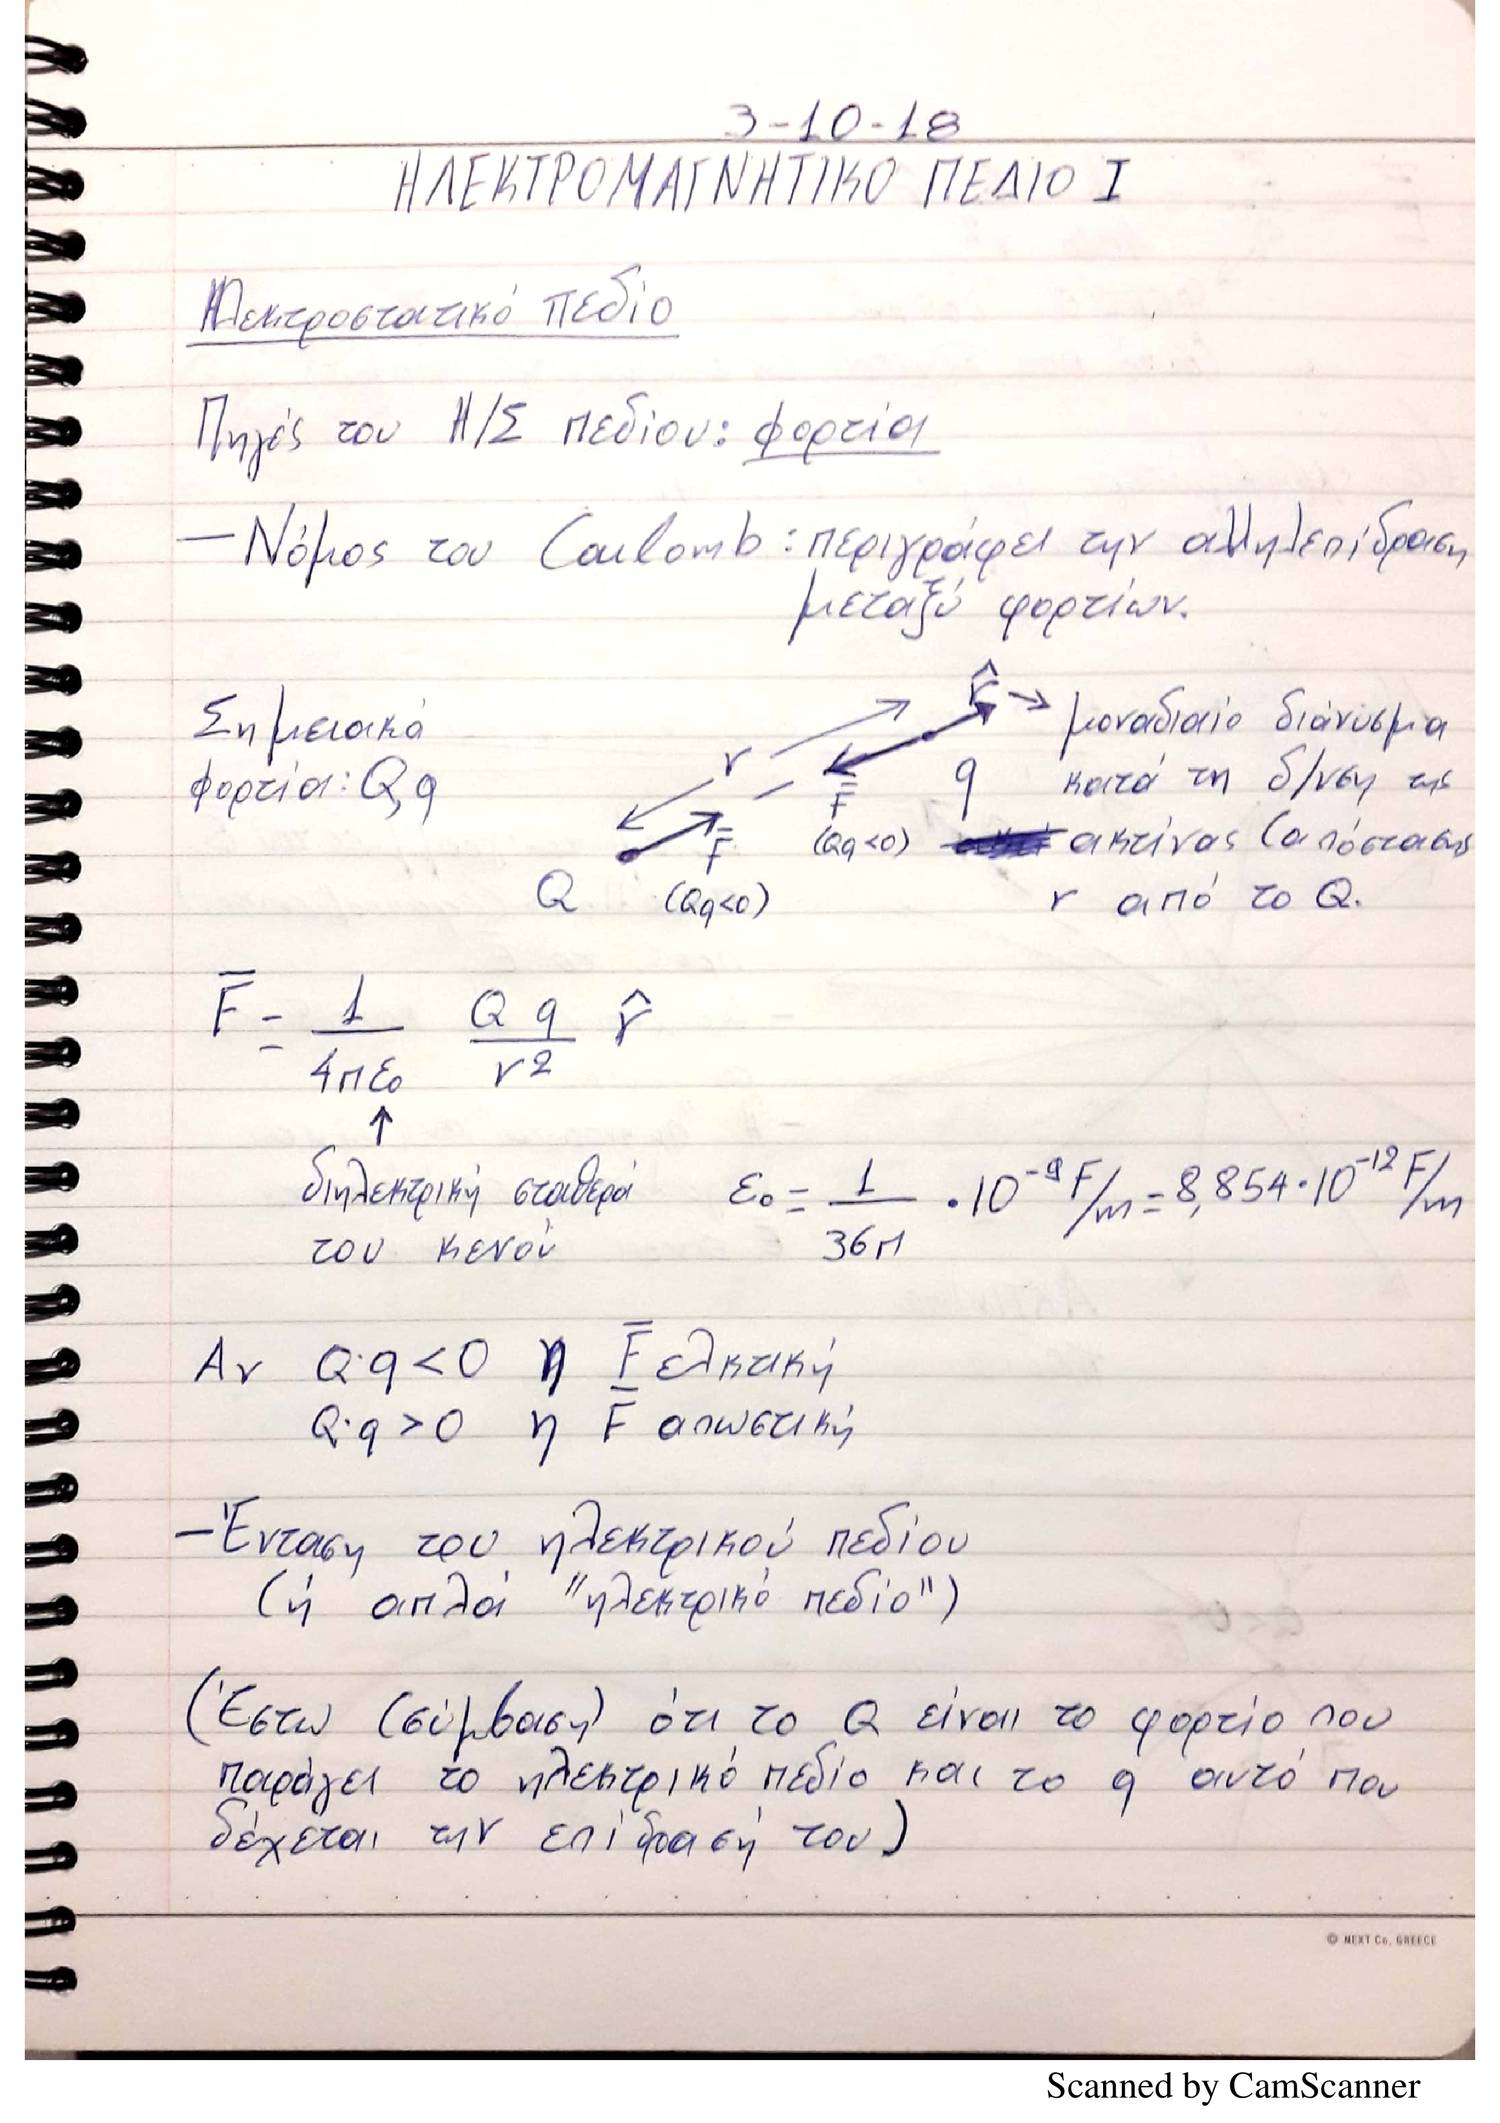 3-10-18
ΗΛΕΚΤΡΟΜΑΓΝΗΤΙΚΟ ΠΕΔΙΟ I
Ηλεκτροστατικό πεδίο
Πηγές του Η/Σ πεδίου: φορτία
— Νόμος του Coulomb: περιγράφει την αλληλεπίδραση
μεταξύ φορτίων.
Σημειακά
φορτία: Q,q
r
r̂ → μοναδιαίο διάνυσμα
κατά τη δ/νση της
ακτίνας (απόστασης
r από το Q.
q
F̄
(Qq<0)
F̄
(Qq<0)
Q
F̄ = 1/4πε₀ Qq/r² r̂
↑
διηλεκτρική σταθερά
του κενού
ε₀ = 1/36π · 10⁻⁹ F/m = 8,854·10⁻¹² F/m
Αν Q·q<0 η F̄ ελκτική
Q·q>0 η F̄ απωστική
— Ένταση του ηλεκτρικού πεδίου
(ή απλά "ηλεκτρικό πεδίο")
(Έστω (σύμβαση) ότι το Q είναι το φορτίο που
παράγει το ηλεκτρικό πεδίο και το q αυτό που
δέχεται την επίδρασή του)
© NEXT Co. GREECE
Scanned by CamScanner